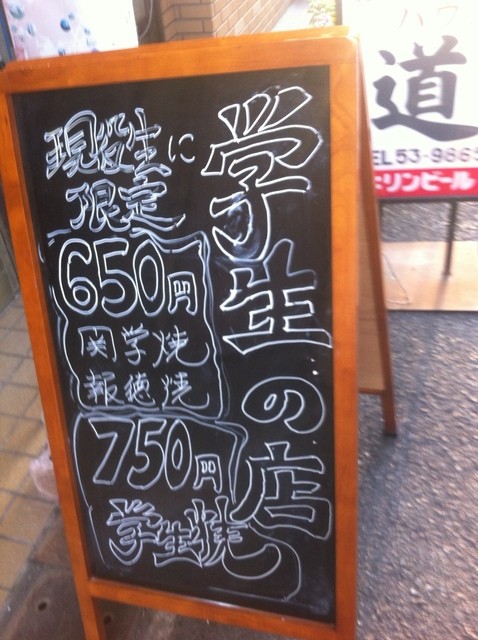 学生の店
現役生に
限定
650円
関学焼
報徳焼
750円
学生焼
道
TEL53-9865
キリンビール